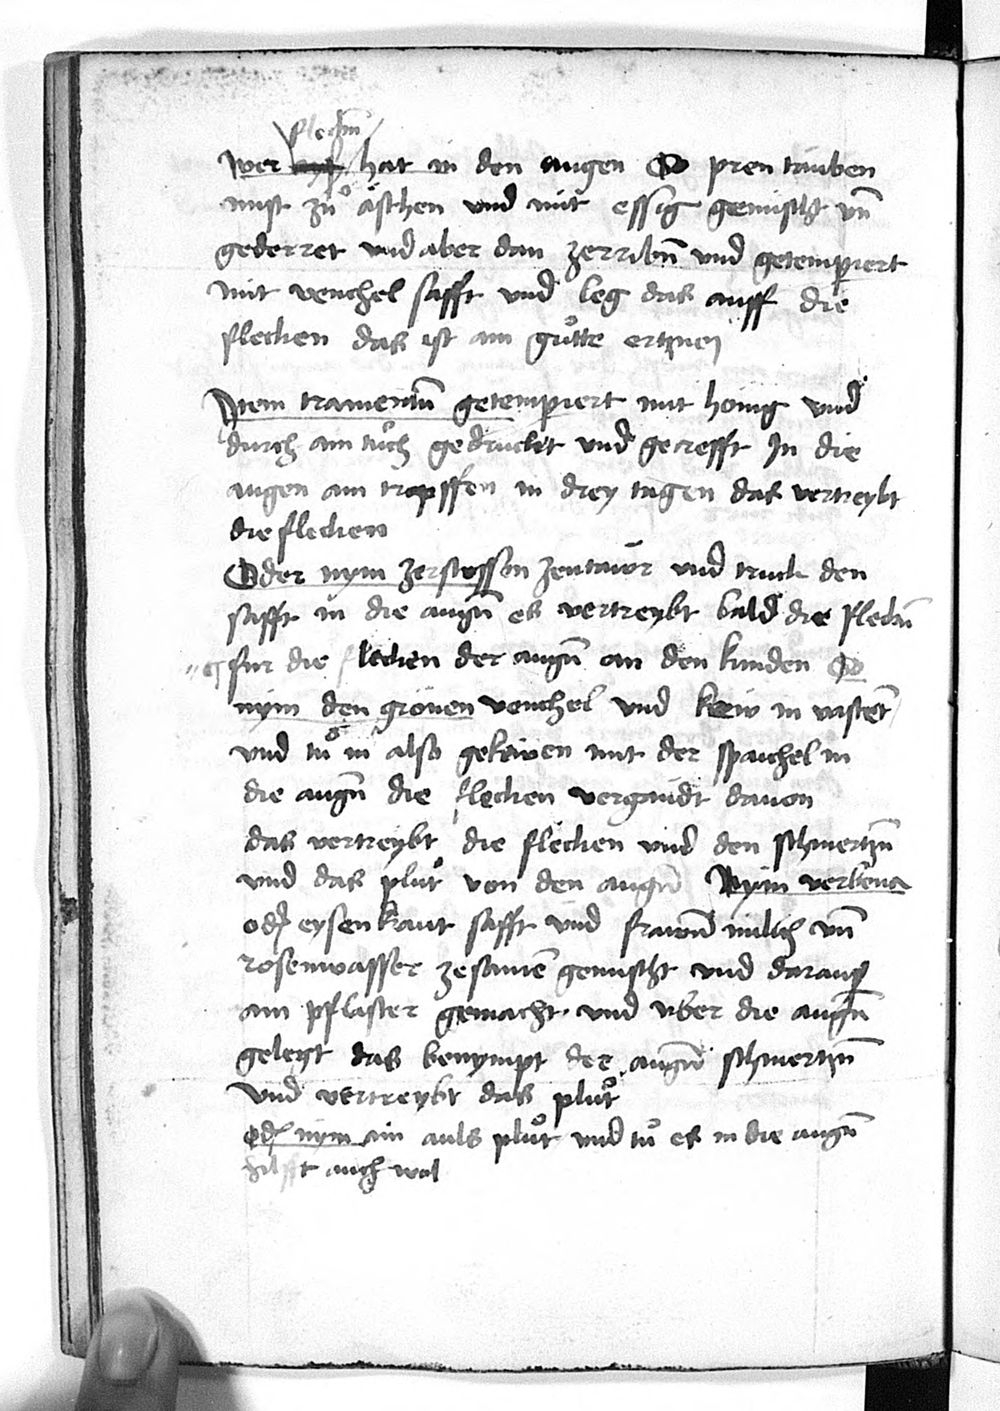 flecken̄
wer hat in den augen So pren tauben
mist zuͦ äschen und mit essig gemischt vn̄
gederret und aber dan zerribn̄ und getempiert
mit venchel safft und leg das auff die
flecken das ist ain guͦtte ertzney
Item tramentū getempiert mit honig und
durch ain tuͦch gedruckt und getrefft In die
augen ain tropffen in drey tagen das vertreybt
die flecken
Oder nym zerstossen zentawr und truck den
safft in die augn̄ es vertreybt bald die fleckn̄
fur die flecken der augn̄ an den kinden So
nym den grönen venchel und kew in vasten̄
und tuͦ in also gekewen mit der spaichel in
die augn̄ die flecken vergandt davon
das vertreybt die flecken und den schmertzn̄
und das pluͦt von den augn̄ Nym verbena
od eysenkraut safft und frawn̄ milch vn̄
rosenwasser zesamē gemischt und darauß
ain pflaster gemacht und uber die augn̄
gelegt das benympt der augn̄ schmertzn̄
und vertreybt das pluͦt
od nym ain auls pluͦt und tuͦ es in die augn̄
hilfft auch wol